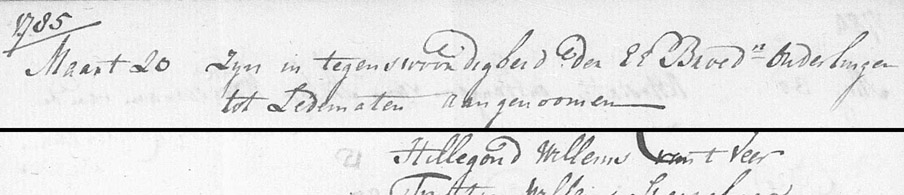 1785
Maart 20 Zyn in tegenswoordigheid der EE Broedn Ouderlingen
tot Ledematen aangenoomen
Hillegond Willems van t Veer